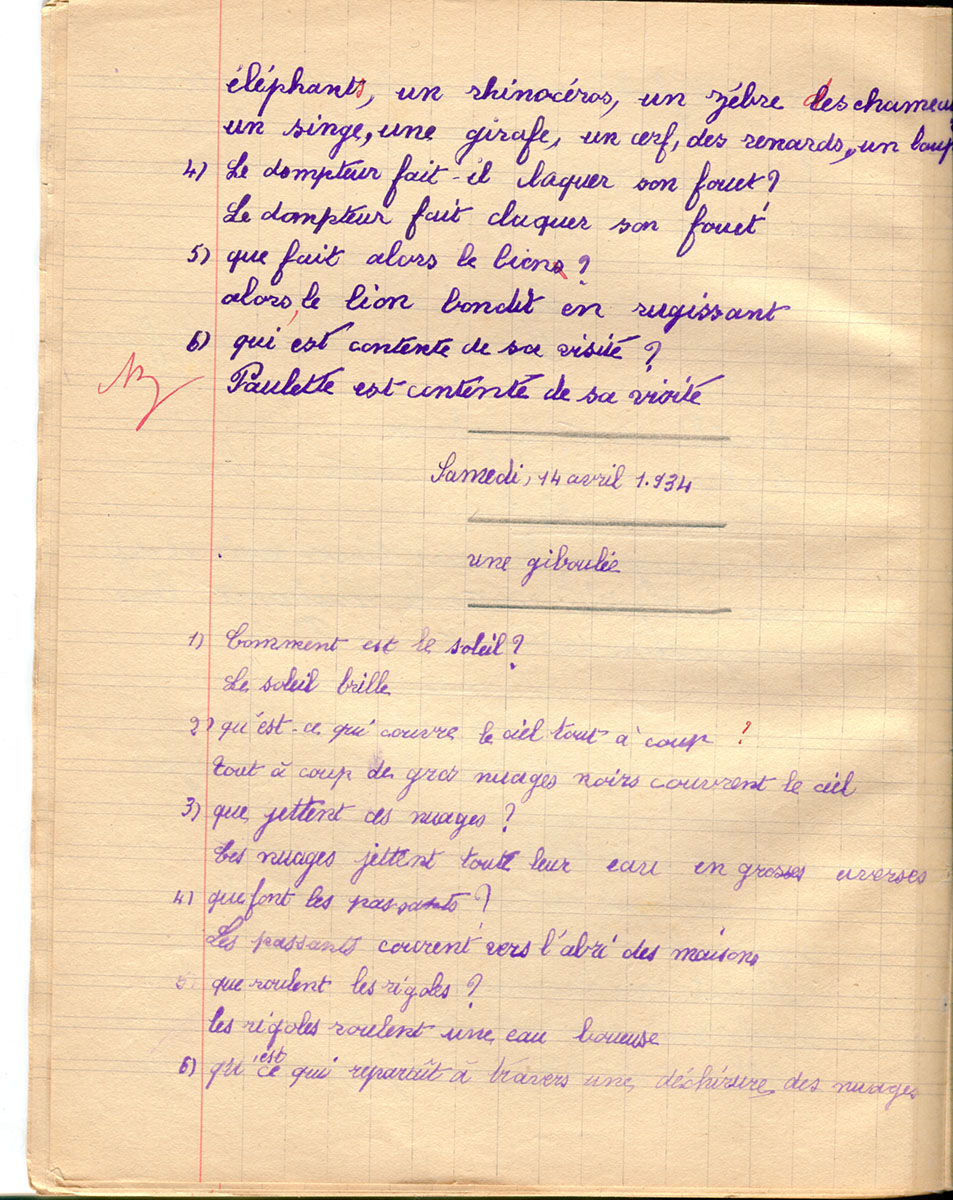 éléphants, un rhinocéros, un zébre des chameau
un singe, une girafe, un cerf, des renards, un loup
4) Le dompteur fait-il claquer son fouet?
Le dompteur fait claquer son fouet
5) que fait alors le lion ?
alors, le lion bondit en rugissant
6) qui est contente de sa visite ?
Paulette est contente de sa visite
Samedi, 14 avril 1.934
une giboulée
1) Comment est le soleil ?
Le soleil brille
2) qu'est-ce qui couvre le ciel tout à coup ?
tout à coup de gros nuages noirs couvrent le ciel
3) que jettent ces nuages ?
Ces nuages jettent toute leur eau en grosses averses
4) que font les passants ?
Les passants courent vers l'abri des maisons
5) que roulent les rigoles ?
les rigoles roulent une eau boueuse
6) qu'est ce qui repartût à travers une déchirure des nuages